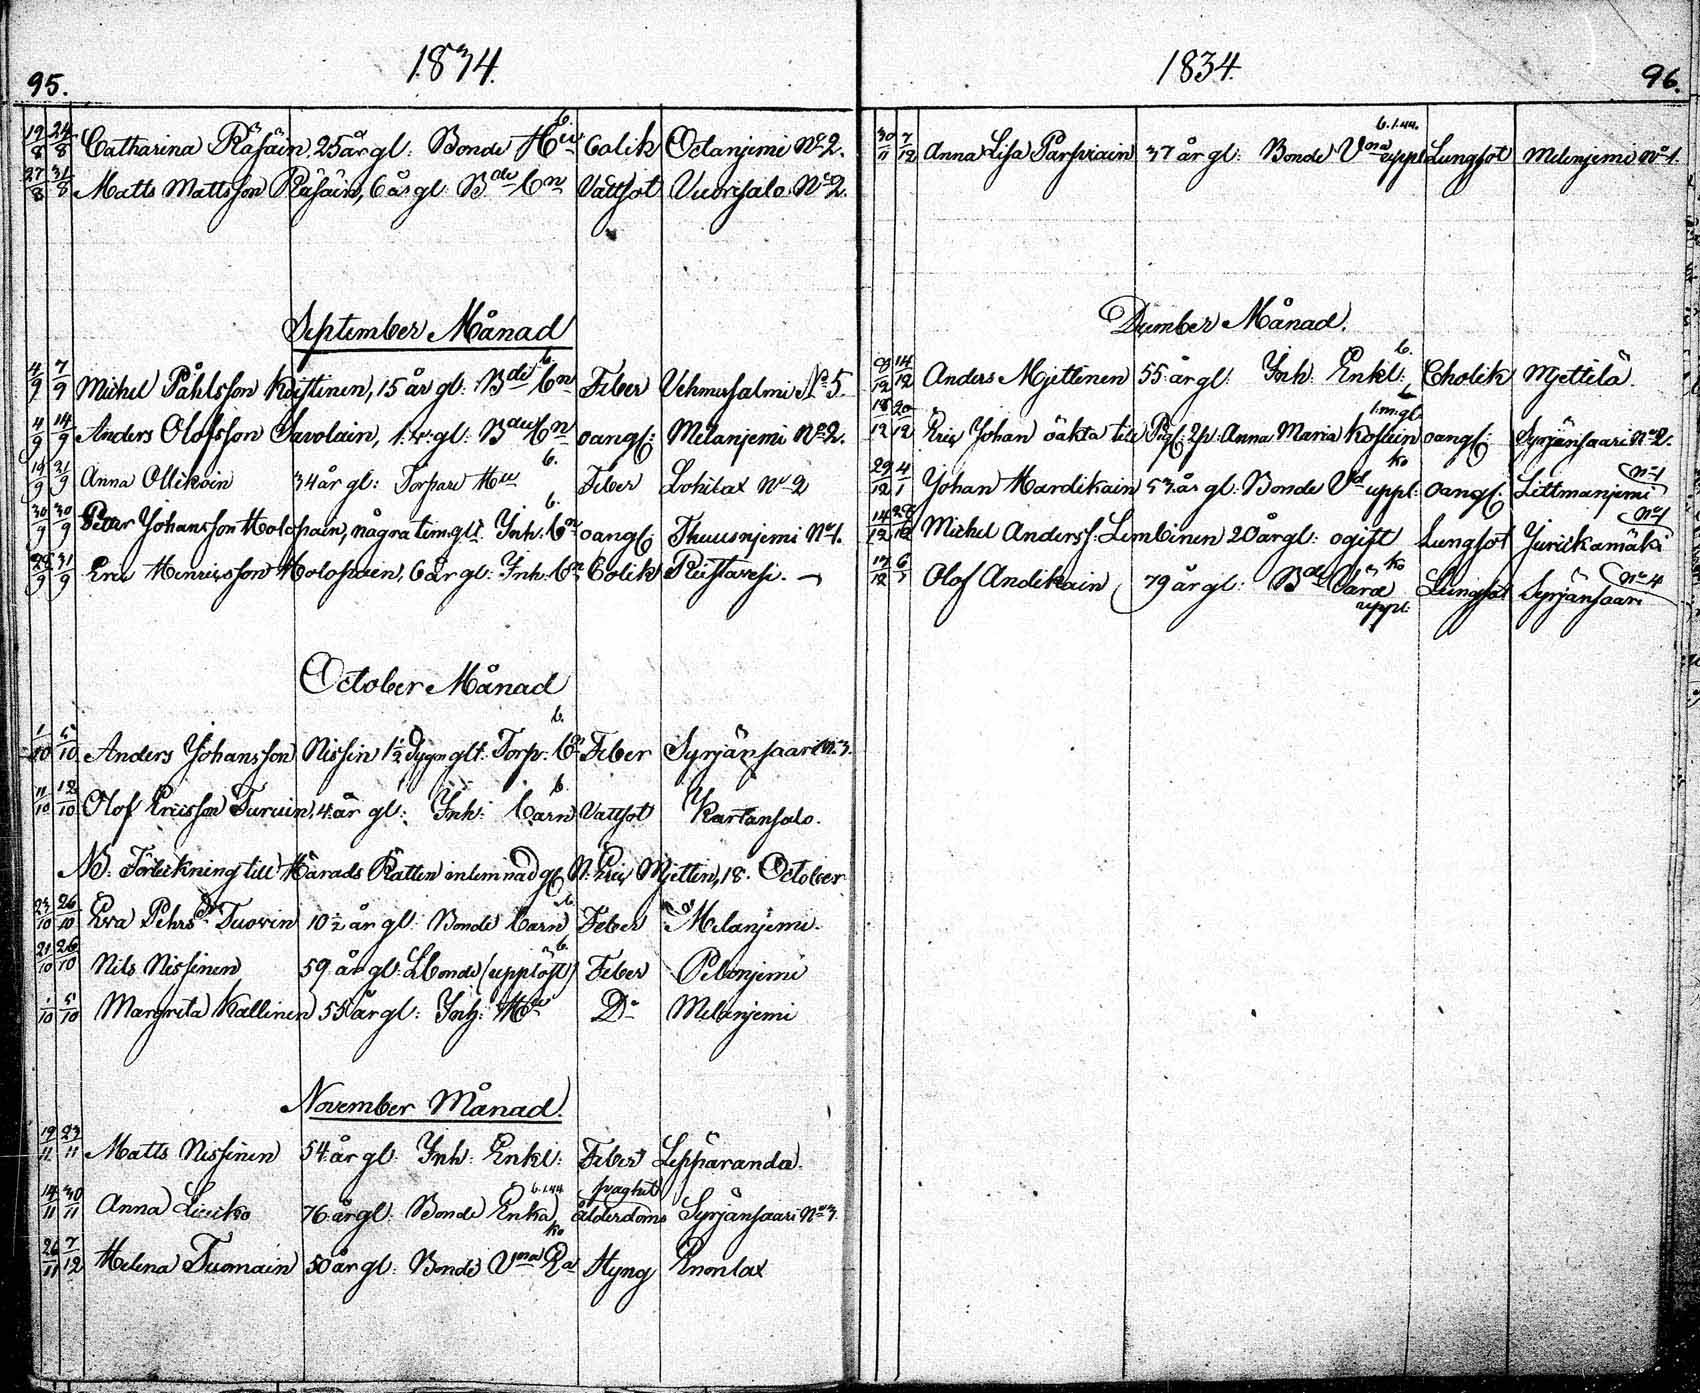 95. 1834.
19/8 24/8 Catharina Räsäin, 25 år gl: Bonde Hu b. Colik Octanjemi No 2.
27/8 31/8 Matts Mattsson Räsäin, 6 år gl: Bde bn Vattsot Vuorisalo No 2.
September Månad
4/9 7/9 Michel Påhlsson Koistinen, 15 år gl: Bde bn b. Feber Vehmersalmi No 5.
4/9 14/9 Anders Olofsson Savolain, 1. v: gl: Bde bn oangf: Melanjemi No 2.
19/9 21/9 Anna Ollikain 34 år gl: Torpare Hu b. Feber Lohilax No 2
30/9 30/9 Petter Johansson Holopain, några tim: glt. Inh: bn b. oangf: Thuusnjemi No 1.
31/9 Eric Henricsson Holopain, 6 år gl: Inh: bn Colik Riistavesi.
October Månad
1/10 5/10 Anders Johansson Nissin 1 1/2 Dygn glt: Torp: bn b. Feber Syrjänsaari No 3.
11/10 12/10 Olof Ericsson Turuin, 4 år gl: Inh: barn b. Vattsot Kartansalo.
NB. Förteckning till Härads Rätten inlemnad gf N: Eric Mjettin, 18. October
23/10 26/10 Eva Pehrs Dr Tuovin 10 1/2 år gl: Bonde barn b. Feber Melanjemi.
21/10 26/10 Nils Nissinen 59 år gl: Lbonde (upplöst) b. Feber Pelonjemi
1/10 5/10 Margreta Kallinen 55 år gl: Inh: Hu Do Melanjemi
November Månad.
19/11 23/11 Matts Nissinen 54 år gl: Inh: Enkl: Feber Leppäranda.
14/11 30/11 Anna 76 år gl: Bonde Enka b.1.44 Ålderdoms svaghet Syrjänsaari No 3.
26/11 7/12 Helena Tuomain 50 år gl: Bonde Vna Ea ko Styng Enonlax
1834. 96.
30/11 7/12 Anna Lisa Parsviain 37 år gl: Bonde Vna uppl b.1.44. Lungsot Melanjemi No 1.
December Månad.
14/12 Anders Mjettenen 55 år gl: Inh: Enkl: b. Cholik Mjettilä.
18/12 20/12 Eric Johan oäkta till Pig: Anna Maria Kosuin 1. m: gl. oangf: Syrjänsaari No 2.
29/12 4/1 Johan Hardikain 53 år gl: Bonde Vd uppl: ko oangf: Littmanjemi No 1
14/12 28/12 Michel Anderss: Lembinen 20 år gl: ogift Lungsot Jurickamäki No 1
6/1 Olof Andikain 79 år gl: Bd uppl: ko Lungsot Syrjänsaari No 4